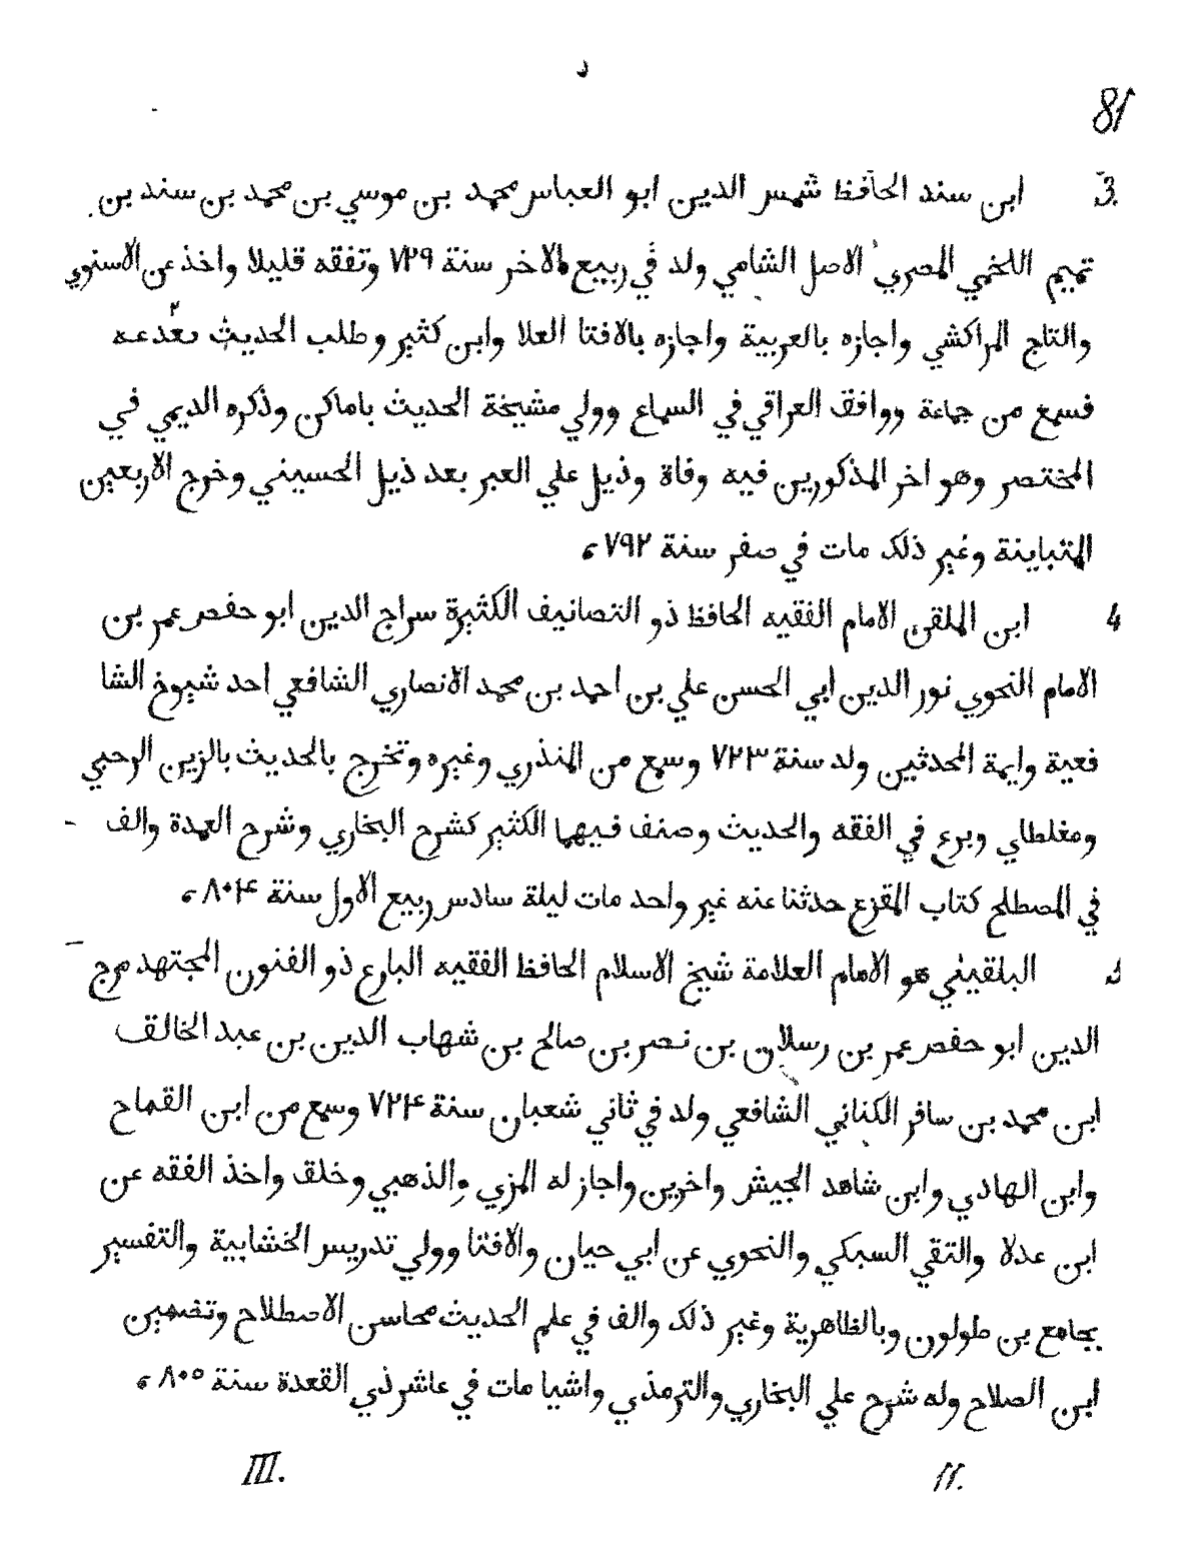 81
3. ابن سند الحافظ شمس الدين ابو العباس محمد بن موسي بن محمد بن سند بن
تميم اللخمي المصري الاصل الشامي ولد في ربيع الاخر سنة ٧٢٩ وتفقه قليلا واخذ عن الاسنوي
والتاج المراكشي واجازه بالعربية واجازه بالافتا العلا وابن كثير وطلب الحديث
فسمع من جماعة ووافق العراقي في السماع وولي مشيخة الحديث باماكن وذكره الديمي في
المختصر وهو اخر المذكورين فيه وفاة وذيل علي العبر بعد ذيل الحسيني وخرج الاربعين
المتباينة وغير ذلك مات في صفر سنة ٧٩٢ ،
4 ابن الملقن الامام الفقيه الحافظ ذو التصانيف الكثيرة سراج الدين ابو حفص عمر بن
الامام النحوي نور الدين ابي الحسن علي بن احمد بن محمد الانصاري الشافعي احد شيوخ الشا
فعية وايمة المحدثين ولد سنة ٧٢٣ وسمع من المنذري وغيره وتخرج بالحديث بالزين الرحبي
ومغلطاي وبرع في الفقه والحديث وصنف فيهما الكثير كشرح البخاري وشرح العمدة والف
في المصطلح كتاب المقزع حدثنا عنه غير واحد مات ليلة سادس ربيع الاول سنة ٨٠٤ ،
البلقيني هو الامام العلامة شيخ الاسلام الحافظ الفقيه البارع ذو الفنون المجتهد
الدين ابو حفص عمر بن رسلان بن نصر بن صالح بن شهاب الدين بن عبد الخالق
ابن محمد بن سافر الكناني الشافعي ولد في ثاني شعبان سنة ٧٢٤ وسمع من ابن القماح
وابن الهادي وابن شاهد الجيش واخرين واجاز له المزي والذهبي وخلق واخذ الفقه عن
ابن عدلا والتقي السبكي والنحوي عن ابي حيان والافتا وولي تدريس الخشابية والتفسير
بجامع بن طولون وبالظاهرية وغير ذلك والف في علم الحديث محاسن الاصطلاح وتضمين
ابن الصلاح وله شرح علي البخاري والترمذي واشيا مات في عاشر ذي القعدة سنة ٨٠٥ ،
11. III.